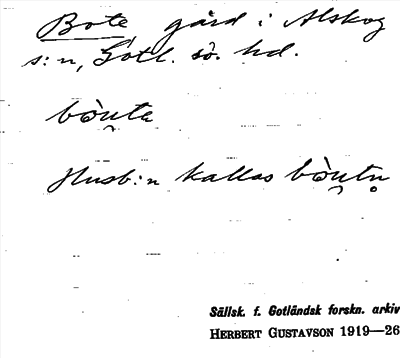 Bote gård i Alskog
s:n, Gotl. sö. hd.
bòu̯te
Husb:n kallas bòu̯tn̥
Sällsk. f. Gotländsk forskn. arkiv
HERBERT GUSTAVSON 1919—26